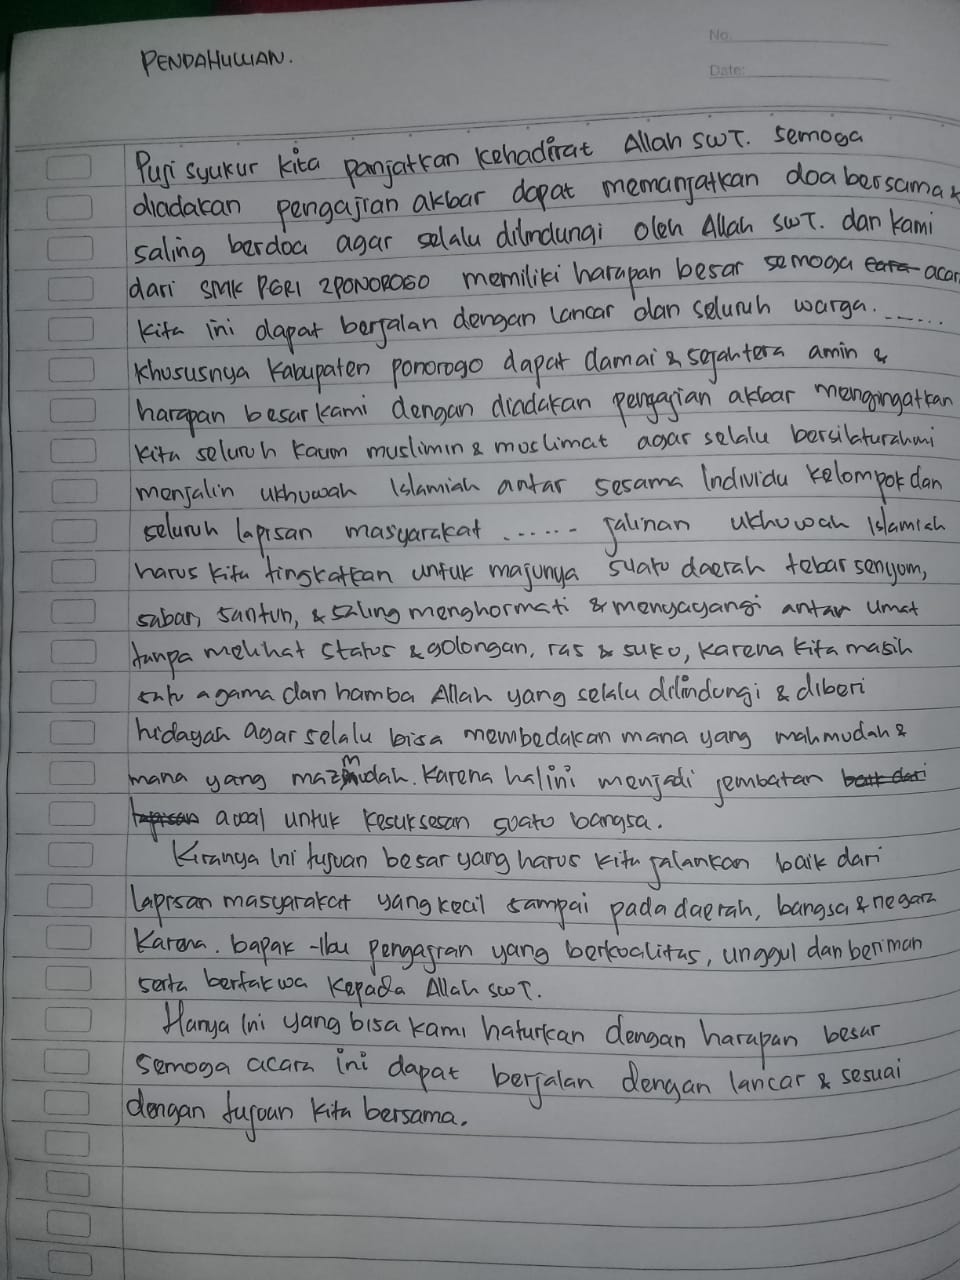 No.
Date:
PENDAHULUAN.
Puji syukur kita panjatkan kehadirat Allah SWT. semoga
diadakan pengajian akbar dapat memanjatkan doa bersama &
saling berdoa agar selalu dilindungi oleh Allah SWT. dan kami
dari SMK PGRI 2 PONOROGO memiliki harapan besar semoga acar
kita ini dapat berjalan dengan lancar dan seluruh warga.......
khususnya Kabupaten ponorogo dapat damai & sejahtera amin &
harapan besar kami dengan diadakan pengajian akbar mengingatkan
kita seluruh kaum muslimin & muslimat agar selalu bersilaturahmi
menjalin ukhuwah Islamiah antar sesama Individu kelompok dan
seluruh lapisan masyarakat ...... jalinan ukhuwah Islamiah
harus kita tingkatkan untuk majunya suatu daerah tebar senyum,
sabar, santun, & saling menghormati & menyayangi antar umat
tanpa melihat status & golongan, ras & suku, karena kita masih
satu agama dan hamba Allah yang selalu dilindungi & diberi
hidayah agar selalu bisa membedakan mana yang mahmudah &
mana yang mazmudah. Karena hal ini menjadi jembatan baik dari
lapisan awal untuk kesuksesan suatu bangsa.
Kiranya Ini tujuan besar yang harus kita jalankan baik dari
lapisan masyarakat yang kecil sampai pada daerah, bangsa & negara
Karena. bapak -Ibu pengajian yang berkualitas, unggul dan beriman
serta bertakwa kepada Allah SWT.
Hanya Ini yang bisa kami haturkan dengan harapan besar
semoga acara ini dapat berjalan dengan lancar & sesuai
dengan tujuan kita bersama.